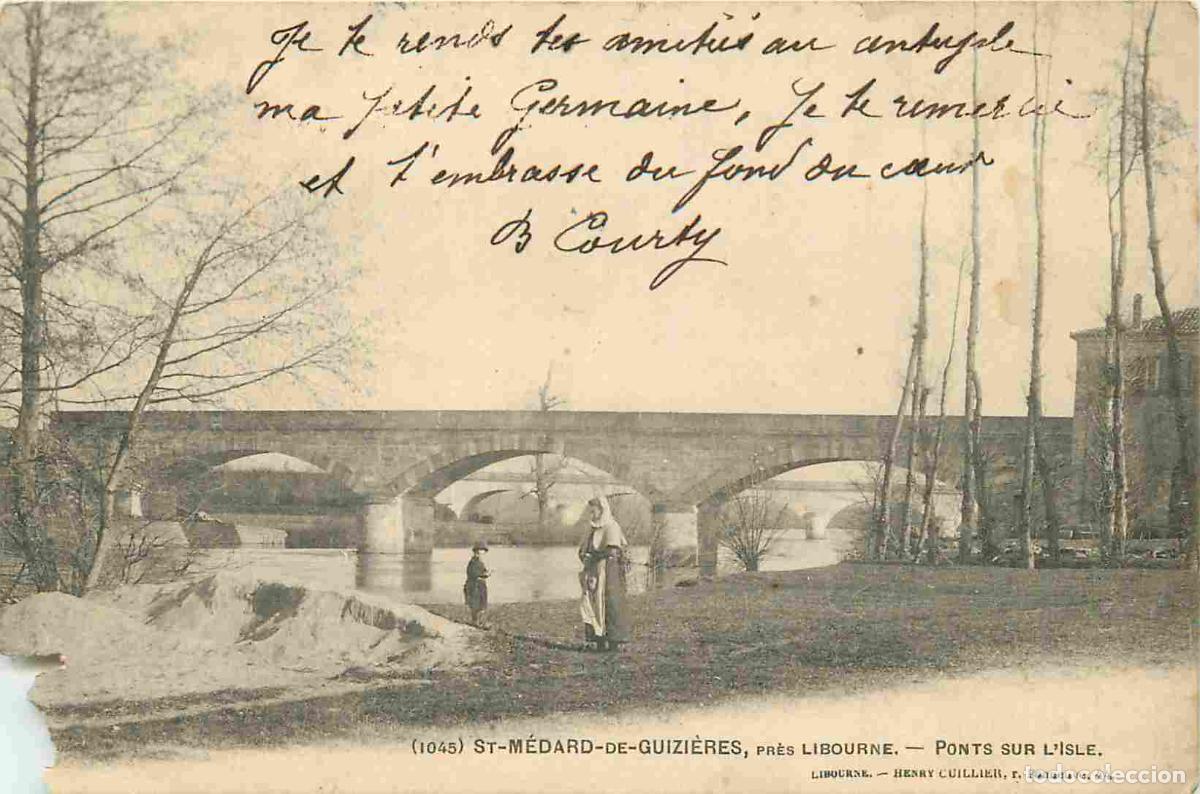 Je te rends tes amitiés au centuple
ma petite Germaine, Je te remercie
et t'embrasse du fond du cœur
B Courty
(1045) ST-MÉDARD-DE-GUIZIÈRES, PRÈS LIBOURNE. — PONTS SUR L'ISLE.
LIBOURNE. — HENRY CUILLIER, r.
todocoleccion